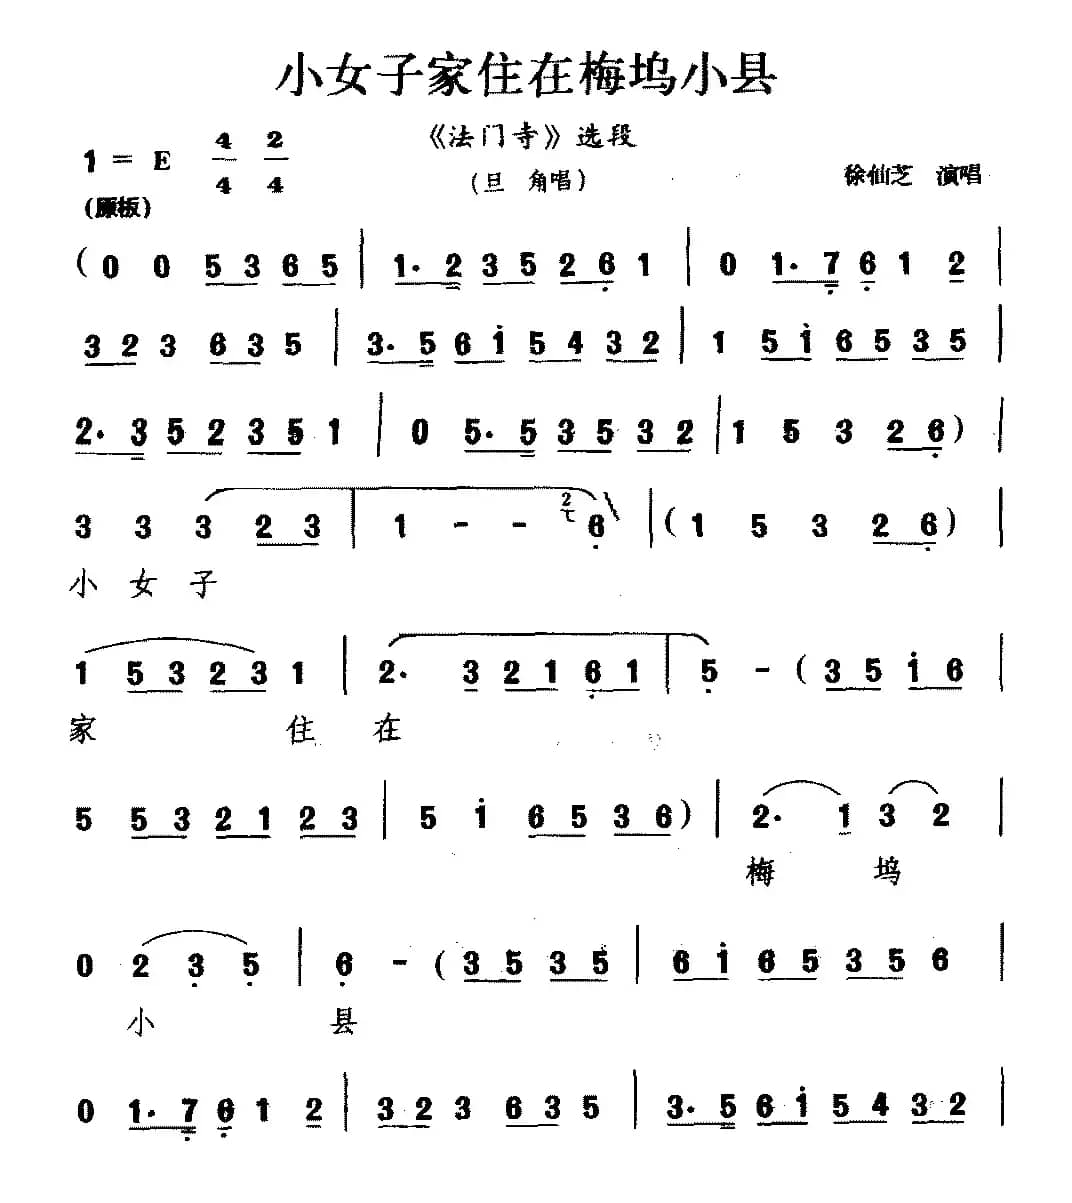 小女子家住在梅坞小县
《法门寺》选段
1 = E 4/4 2/4
(旦 角唱)
徐仙芝 演唱
(原板)
( 0 0 5 3 6 5 | 1· 2 3 5 2 6 1 | 0 1· 7 6 1 2 |
3 2 3 6 3 5 | 3· 5 6 i 5 4 3 2 | 1 5 i 6 5 3 5 |
2· 3 5 2 3 5 1 | 0 5· 5 3 5 3 2 | 1 5 3 2 6 ) |
3 3 3 2 3 | 1 - - 2 6 | ( 1 5 3 2 6 ) |
小 女 子
1 5 3 2 3 1 | 2· 3 2 1 6 1 | 5 - ( 3 5 i 6 |
家 住 在
5 5 3 2 1 2 3 | 5 i 6 5 3 6 ) | 2· 1 3 2 |
梅 坞
0 2 3 5 | 6 - ( 3 5 3 5 | 6 i 6 5 3 5 6 |
小 县
0 1· 7 6 1 2 | 3 2 3 6 3 5 | 3· 5 6 i 5 4 3 2 |